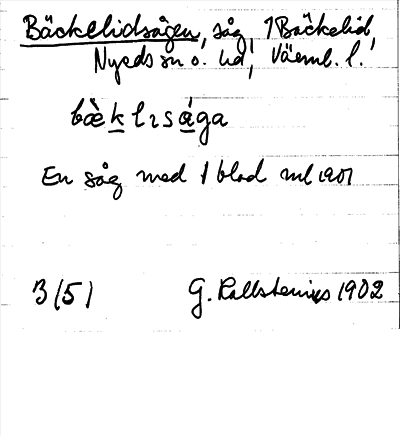 Bäckelidsågen, såg, 1 Bäckelid,
Nyeds sn o. hd, Värml. l.
bæ̀k lısága
En såg med 1 blad ml 1901
3/51
G. Kallstenius 1902